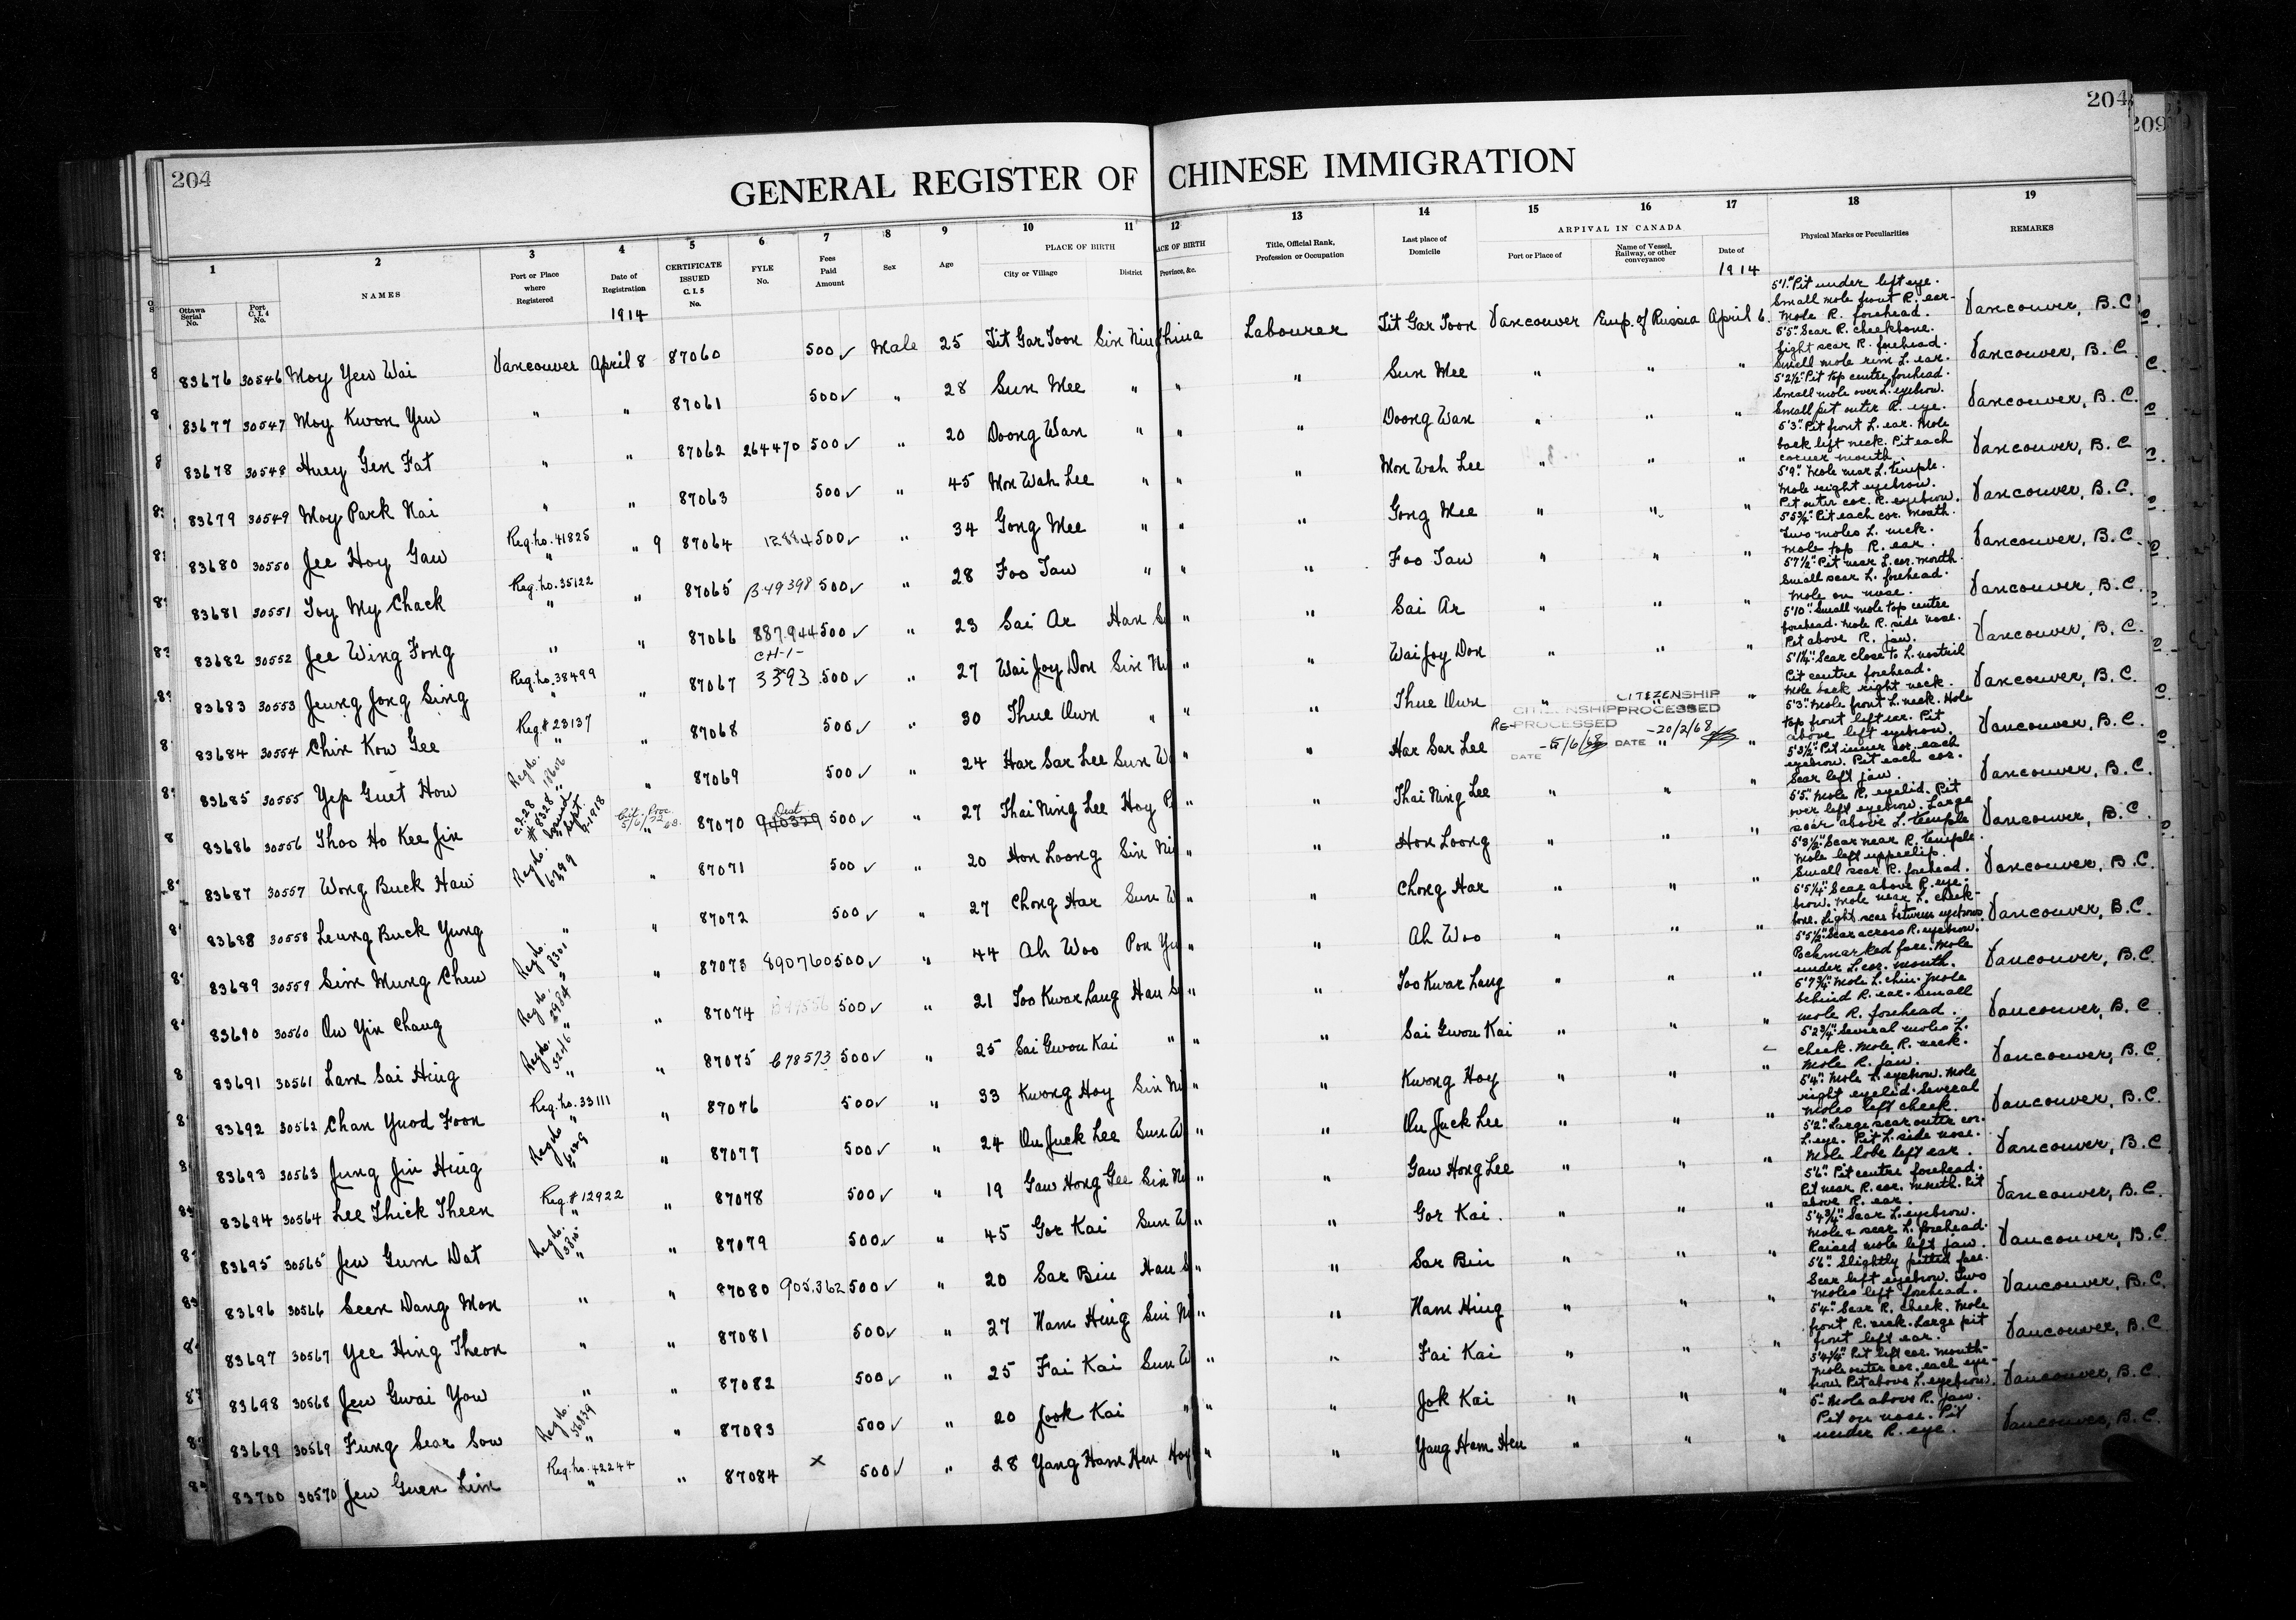 204
204
209
GENERAL REGISTER OF CHINESE IMMIGRATION
1 2 3 4 5 6 7 8 9 10 11 12 13 14 15 16 17 18 19
Ottawa Serial No. Port C.I.4 No. NAMES Port or Place where Registered Date of Registration CERTIFICATE ISSUED C.I.5 No. FYLE No. Fees Paid Amount Sex Age PLACE OF BIRTH City or Village District PLACE OF BIRTH Province, &c. Title, Official Rank, Profession or Occupation Last place of Domicile ARRIVAL IN CANADA Port or Place of Name of Vessel, Railway, or other conveyance Date of Physical Marks or Peculiarities REMARKS
1914 1914
83676 30546 Moy Yew Wai Vancouver April 8 87060 500 ✓ Male 25 Tit Gar Toon Sin Nin China Labourer Tit Gar Toon Vancouver Emp. of Russia April 6. 5'1". Pit under left eye. Small mole front R. ear. Mole R. forehead. Vancouver, B.C.
83677 30547 Moy Kwon Yew " " 87061 500 ✓ " 28 Sun Mee " " " Sun Mee " " " 5'5". Scar R. cheekbone. Light scar R. forehead. Small mole rim L. ear. Vancouver, B.C.
83678 30548 Huey Gen Fat " " 87062 264470 500 ✓ " 20 Doong Wan " " " Doong Wan " " " 5'2½". Pit top centre forehead. Small mole over L. eyebrow. Small pit outer R. eye. Vancouver, B.C.
83679 30549 Moy Park Nai " " 87063 500 ✓ " 45 Mon Wah Lee " " " Mon Wah Lee " " " 5'3". Pit front L. ear. Mole back left neck. Pit each corner mouth. Vancouver, B.C.
83680 30550 Jee Hoy Gaw Reg. no. 41825 " " 9 87064 12884 500 ✓ " 34 Gong Mee " " " Gong Mee " " " 5'9". Mole near L. temple. Mole right eyebrow. Pit outer cor. R. eyebrow. Vancouver, B.C.
83681 30551 Toy My Chack Reg. no. 35122 " " 87065 B-49398 500 ✓ " 28 Foo Taw " " " Foo Taw " " " 5'5¾". Pit each cor. mouth. Two moles L. neck. Mole top R. ear. Vancouver, B.C.
83682 30552 Jee Wing Fong " " 87066 887.944 CH-1- 500 ✓ " 23 Sai Ar Han S " " Sai Ar " " " 5'7½". Pit near L. cor. mouth. Small scar L. forehead. Mole on nose. Vancouver, B.C.
83683 30553 Jeung Jong Sing Reg. no. 38499 " " 87067 3393 500 ✓ " 27 Wai Joy Don Sin Ni " " Wai Joy Don " " " 5'10". Small mole top centre forehead. Mole R. side nose. Pit above R. jaw. Vancouver, B.C.
83684 30554 Chin Kow Gee Reg # 23137 " " 87068 500 ✓ " 30 Thue Own " " " Thue Own " " " 5'1¼". Scar close to L. nostril. Pit centre forehead. Mole back right neck. Vancouver, B.C.
CITIZENSHIP PROCESSED DATE -20/2/68
RE- CITIZENSHIP PROCESSED DATE -5/6/68
83685 30555 Yep Guet How " 87069 500 ✓ " 24 Har Sar Lee Sun W " " Har Sar Lee " " 5'3". Mole front L. neck. Mole top front left ear. Pit above left eyebrow. Vancouver, B.C.
83686 30556 Thoo Ho Kee Jin C.I.28 # 8328 Issued Sept. Cit. Proc. 5/6/72 " 87070 Dest 940329 500 ✓ " 27 Thai Ning Lee Hoy P " " Thai Ning Lee " " " 5'3½". Pit inner cor. each eyebrow. Pit each cor. Scar left jaw. Vancouver, B.C.
83687 30557 Wong Buck Haw Reg no. 6289 " 87071 500 ✓ " 20 Hon Loong Sin Ni " " Hon Loong " " " 5'5". Mole R. eyelid. Pit over left eyebrow. Large scar above L. temple. Vancouver, B.C.
83688 30558 Leung Buck Yung " " 87072 500 ✓ " 27 Chong Har Sun W " " Chong Har " " " 5'3½". Scar near R. temple. Mole left upper lip. Small scar R. forehead. Vancouver, B.C.
83689 30559 Sim Mung Chew Reg no. 8301 " 87073 890760 500 ✓ " 44 Ah Woo Pon Yu " " Ah Woo " " " 5'5¼". Scar above R. eyebrow. Mole near L. cheekbone. Light scar between eyebrows. Vancouver, B.C.
83690 30560 Ow Yin Chang Reg no. 2984 " " 87074 500 ✓ " 21 Too Kwar Lang Han S " " Too Kwar Lang " " " 5'5½". Scar across R. eyebrow. Pockmarked face. Mole under L. cor. mouth. Vancouver, B.C.
83691 30561 Lam Sai Hing Reg no. 5246 " " 87075 678573 500 ✓ " 25 Sai Gwou Kai " " " Sai Gwou Kai " " " 5'7¾". Mole L. chin. Mole behind R. ear. Small mole R. forehead. Vancouver, B.C.
83692 30562 Chan Yuod Foon Reg. no. 33111 " " 87076 500 ✓ " 33 Kwong Hoy Sin Ni " " Kwong Hoy " " " 5'2¾". Several moles L. cheek. Mole R. neck. Mole R. jaw. Vancouver, B.C.
83693 30563 Jung Jin Hing Reg no. 6129 " " 87077 500 ✓ " 24 Ou Juck Lee Sun W " " Ou Juck Lee " " " 5'4". Mole L. eyebrow. Mole right eyelid. Several moles left cheek. Vancouver, B.C.
83694 30564 Lee Thick Theen Reg. # 12922 " " 87078 500 ✓ " 19 Gaw Hong Gee Sin Ni " " Gaw Hong Lee " " " 5'2". Large scar outer cor. L. eye. Pit L. side nose. Mole lobe left ear. Vancouver, B.C.
83695 30565 Jew Gum Dat Reg no. " " 87079 500 ✓ " 45 Gor Kai Sun W " " Gor Kai. " " " 5'6". Pit centre forehead. Pit near R. cor. mouth. Pit above R. ear. Vancouver, B.C.
83696 30566 Seen Dang Mon " " 87080 905.362 500 ✓ " 20 Sar Bin Han S " " Sar Bin " " " 5'4¾". Scar L. eyebrow. Mole & scar L. forehead. Raised mole left jaw. Vancouver, B.C.
83697 30567 Yee Hing Theon " " 87081 500 ✓ " 27 Nam Hing Sin Ni " " Nam Hing " " " 5'6". Slightly pitted face. Scar left eyebrow. Two moles left forehead. Vancouver, B.C.
83698 30568 Jew Gwai Yow " " 87082 500 ✓ " 25 Fai Kai Sun W " " Fai Kai " " " 5'4". Scar R. cheek. Mole front R. neck. Large pit front left ear. Vancouver, B.C.
83699 30569 Fung Sear Sow Reg no. 56839 " " 87083 500 ✓ " 20 Jook Kai " " " Jok Kai " " " 5'4¼". Pit left cor. mouth. Mole outer cor. each eyebrow. Pit above L. eyebrow. Vancouver, B.C.
83700 30570 Jew Guen Lim Reg. no. 42244 " " 87084 x 500 ✓ " 28 Yang Ham Hen Hoy " " Yang Hem Hen " " " 5'- Mole above R. jaw. Pit on nose. Pit under R. eye. Vancouver, B.C.